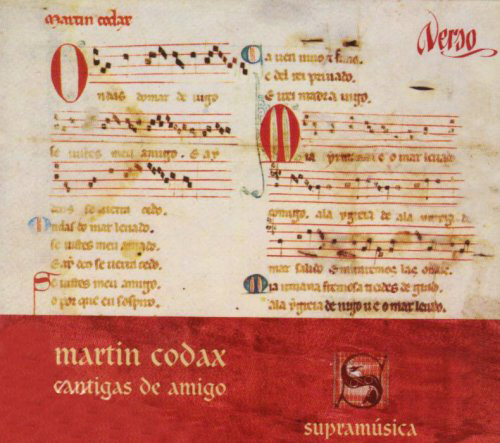 martin codax
Verso
Ondas do mar de uigo
se uistes meu amigo. E ay
deus se uerra cedo.
Ondas do mar leuado.
se uistes meu amado.
E ay deus se uerra cedo.
Se uistes meu amigo.
o por que eu sospiro.
Ca uen uiuo e sano.
e del rei priuado.
E irei madra uigo.
e o mar leuado
comigo. ala ygreia de
mar salido. E miraremos las ondas.
Mia irmana fremosa treides de grado.
ala ygreia de uigo u e o mar leuado.
martin codax
cantigas de amigo
S
supramúsica